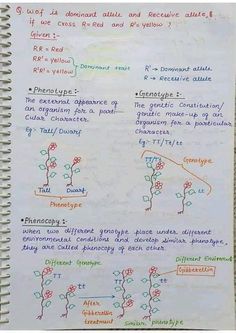 Q. Wof is dominant allele and Recessive allele, &
if we cross R = Red and R' = yellow ?
Given :-
RR = Red
RR' = yellow
R'R' = yellow
Dominant trait
R' → Dominant allele
R → Recessive allele
• Phenotype :-
The external appearance of
an organism for a parti-
cular Character.
Eg:- Tall/Dwarf
Tall Dwarf
Phenotype
• Genotype :-
The genetic Constitution/
genetic make-up of an
organism for a particular
Character.
Eg:- TT/Tt/tt
Genotype
TT/Tt
tt
• Phenocopy :-
When two different genotype place under different
environmental Conditions and develop similar phenotype,
they are Called phenocopy of each other.
Different Genotype
Different Enviroment
Gibberellin
TT
tt
After
Gibberellin
treatment
TT
tt
Similar phenotype